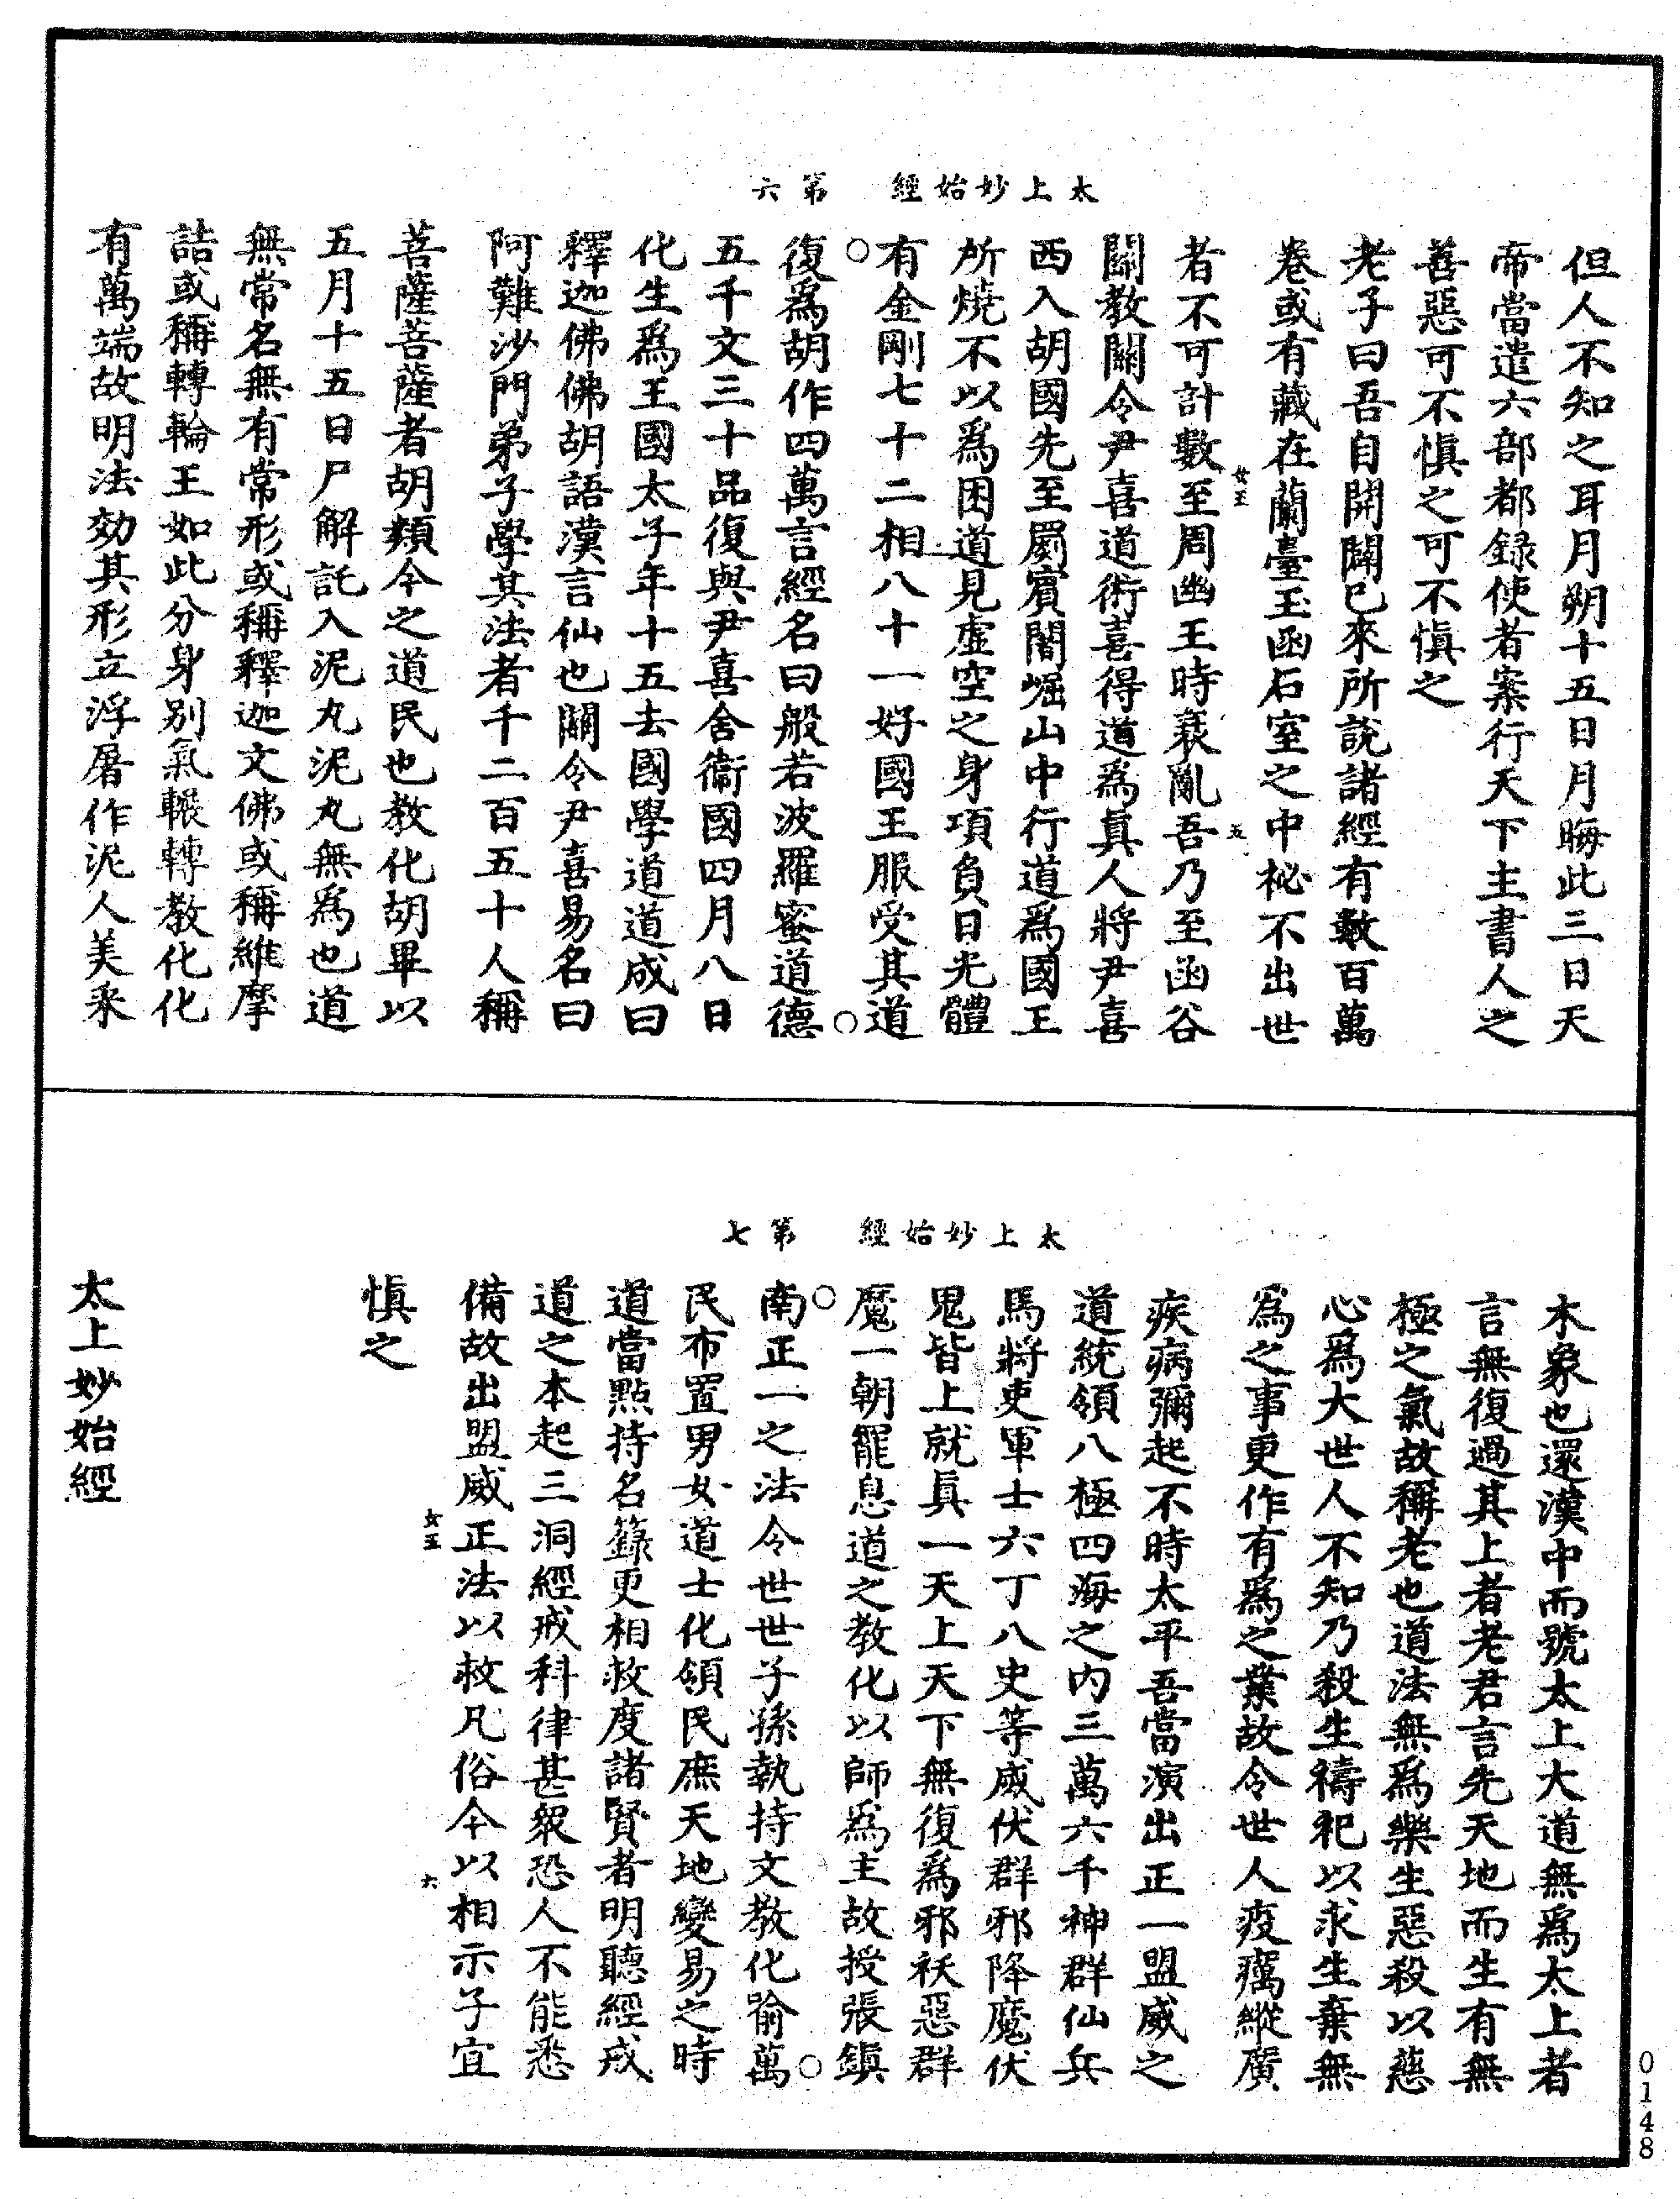 太上妙始經　第六
但人不知之耳月朔十五日月晦此三日天
帝當遣六部都録使者案行天下主書人之
善惡可不慎之可不慎之
老子曰吾自開闢已來所說諸經有數百萬
卷或有藏在蘭臺玉函石室之中祕不出世
女王　五
者不可計數至周幽王時衰亂吾乃至函谷
關教關令尹喜道術喜得道爲眞人將尹喜
西入胡國先至罽賓闍崛山中行道爲國王
所燒不以爲困道見虛空之身項負日光體
有金剛七十二相八十一好國王服受其道
復爲胡作四萬言經名曰般若波羅蜜道德
五千文三十品復與尹喜舍衞國四月八日
化生爲王國太子年十五去國學道道成曰
釋迦佛佛胡語漢言仙也關令尹喜易名曰
阿難沙門弟子學其法者千二百五十人稱
菩薩菩薩者胡類今之道民也教化胡畢以
五月十五日尸解託入泥丸泥丸無爲也道
無常名無有常形或稱釋迦文佛或稱維摩
詰或稱轉輪王如此分身別氣輾轉教化化
有萬端故明法効其形立浮屠作泥人美采
太上妙始經　第七
木象也還漢中而號太上大道無爲太上者
言無復過其上者老君言先天地而生有無
極之氣故稱老也道法無爲樂生惡殺以慈
心爲大世人不知乃殺生禱祀以求生棄無
爲之事更作有爲之業故令世人疫癘縱廣
疾病彌起不時太平吾當演出正一盟威之
道統領八極四海之内三萬六千神群仙兵
馬將吏軍士六丁八史等威伏群邪降魔伏
鬼皆上就眞一天上天下無復爲邪袄惡群
魔一朝罷息道之教化以師爲主故授張鎭
南正一之法令世世子孫執持文教化喻萬
民布置男女道士化領民庶天地變易之時
道當點持名籙更相救度諸賢者明聽經戒
道之本起三洞經戒科律甚衆恐人不能悉
備故出盟威正法以救凡俗今以相示子宜
女王　六
慎之
太上妙始經
0148